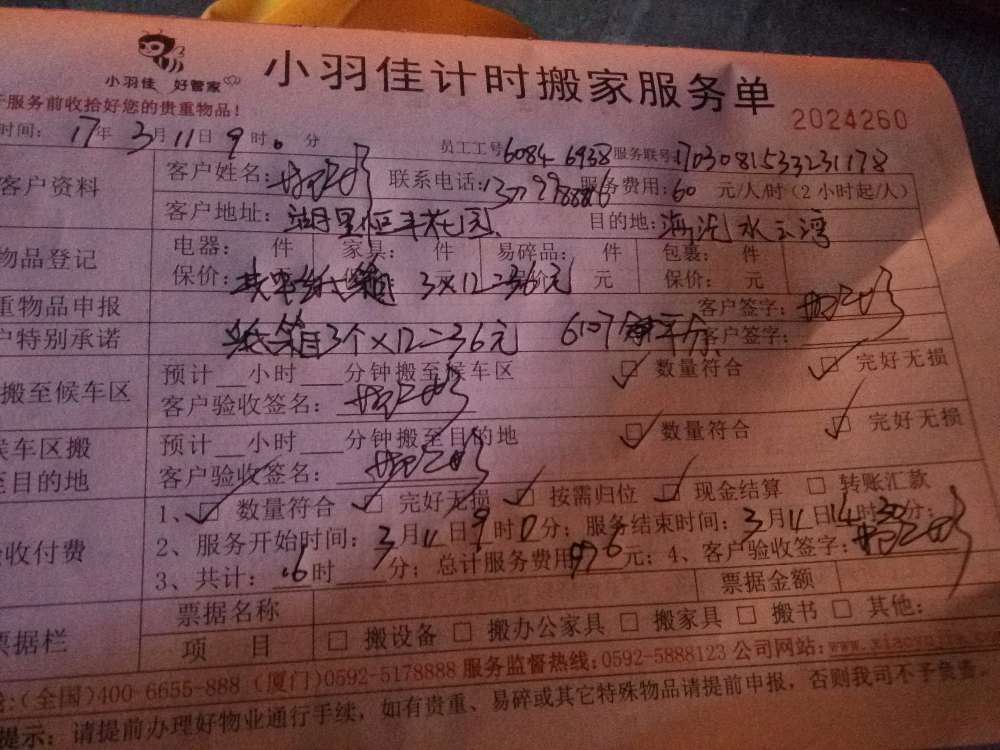 小羽佳 好管家
小羽佳计时搬家服务单
服务前收拾好您的贵重物品！
2024260
时间：17年3月11日9时0分
员工工号6084 6938 服务联号：1703081533231178
客户资料
客户姓名：
联系电话：
服务费用：60 元/人/时（2小时起/人）
客户地址：湖里恒丰花园
目的地：海沧水云湾
物品登记
电器： 件 家具： 件 易碎品： 件 包裹： 件
保价： 元 保价： 元 保价： 元 保价： 元
3×12=36元
重物品申报
客户签字：
户特别承诺
纸箱3个×12=36元 6107
客户签字：
搬至候车区
预计__小时___分钟搬至候车区 ☑ 数量符合 ☑ 完好无损
客户验收签名：
候车区搬至目的地
预计__小时___分钟搬至目的地 ☑ 数量符合 ☑ 完好无损
客户验收签名：
验收付费
1、☑ 数量符合 ☑ 完好无损 ☑ 按需归位 ☑ 现金结算 □ 转账汇款
2、服务开始时间：3月11日9时0分；服务结束时间：3月11日14时30分；
3、共计：16时___分；总计服务费用976元；4、客户验收签字：
票据栏
票据名称
票据金额
项 目
□ 搬设备 □ 搬办公家具 □ 搬家具 □ 搬书 □ 其他：
（全国）400-6655-888（厦门）0592-5178888 服务监督热线：0592-5888123 公司网站：
提示：请提前办理好物业通行手续，如有贵重、易碎或其它特殊物品请提前申报，否则我司不予负责。